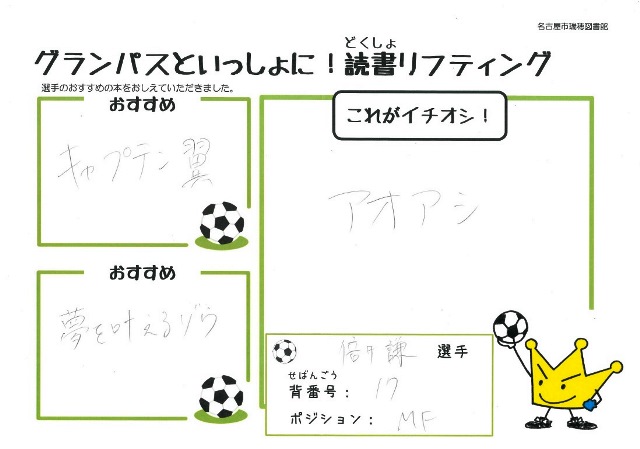 名古屋市瑞穂図書館
どくしょ
グランパスといっしょに！読書リフティング
選手のおすすめの本をおしえていただきました。
おすすめ
キャプテン翼
おすすめ
夢を叶えるゾウ
これがイチオシ！
アオアシ
倍井 謙 選手
せばんごう
背番号： 17
ポジション： MF